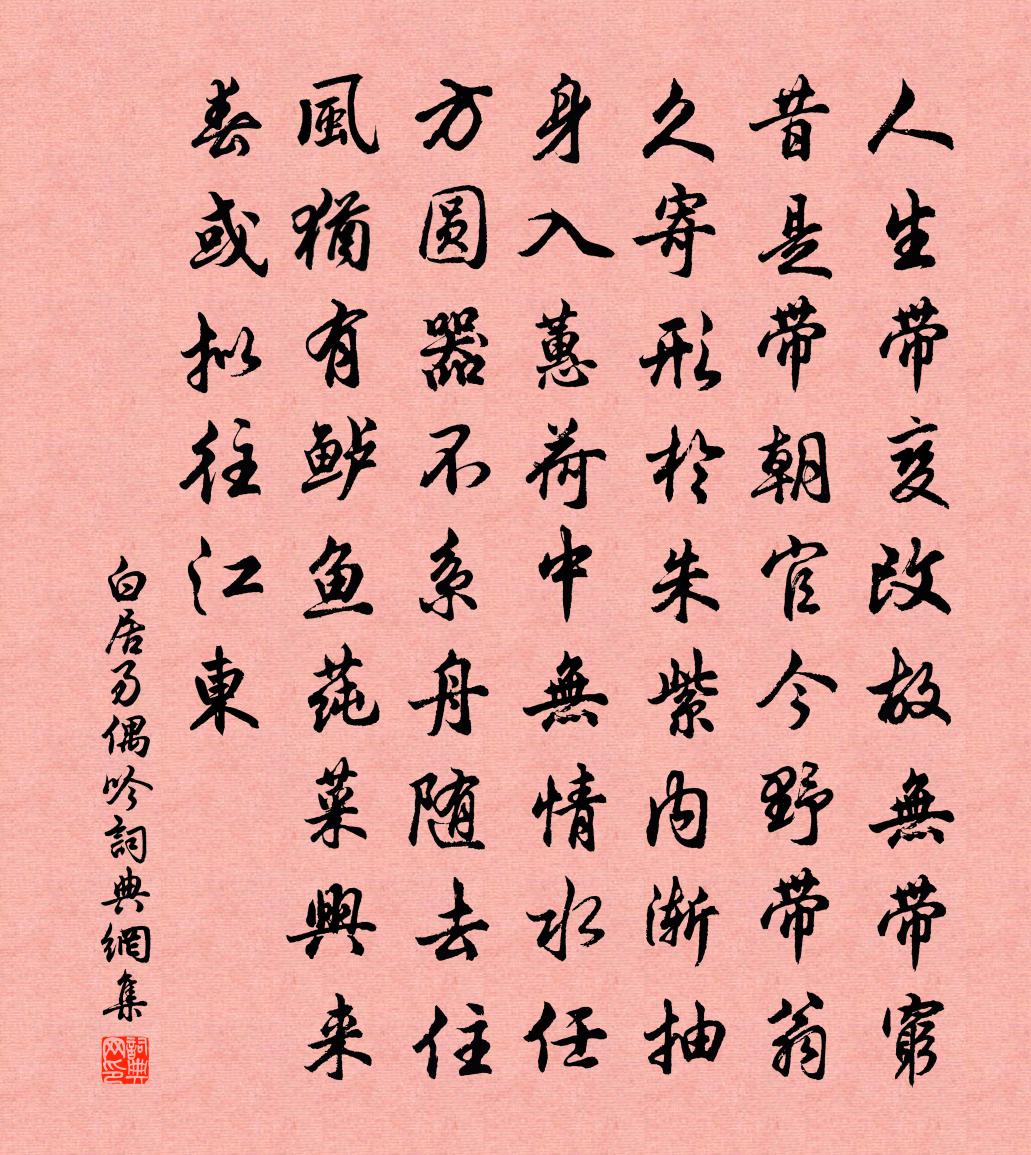 人生带变改故無带窮
昔是带朝官今野带翁
久寄形於朱紫内渐抽
身入蕙荷中無情水任
方圆器不系舟随去住
風猶有鲈鱼莼菜興来
春或拟往江東
白居易偶吟詞典網集
詞典网印